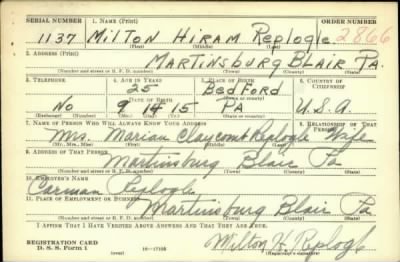 SERIAL NUMBER 1. NAME (Print) ORDER NUMBER
1137 Milton Hiram Replogle 2866
(First) (Middle) (Last)
2. ADDRESS (Print)
Martinsburg Blair Pa.
(Number and street or R. F. D. number) (Town) (County) (State)
3. TELEPHONE 4. AGE IN YEARS 5. PLACE OF BIRTH 6. COUNTRY OF CITIZENSHIP
25 Bedford
DATE OF BIRTH
No 9 14 15 PA U.S.A.
7. NAME OF PERSON WHO WILL ALWAYS KNOW YOUR ADDRESS 8. RELATIONSHIP OF THAT PERSON
Mrs. Marian Claycomb Replogle Wife
(Mr., Mrs., Miss) (First) (Middle) (Last)
9. ADDRESS OF THAT PERSON
Martinsburg Blair Pa
(Number and street or R. F. D. number) (Town) (County) (State)
10. EMPLOYER'S NAME
Carman Replogle
11. PLACE OF EMPLOYMENT OR BUSINESS
Martinsburg Blair Pa
(Number and street or R. F. D. number) (Town) (County) (State)
I AFFIRM THAT I HAVE VERIFIED ABOVE ANSWERS AND THAT THEY ARE TRUE.
REGISTRATION CARD
D. S. S. Form 1 (over) 16—17105 Milton H. Replogle
(Registrant's signature)